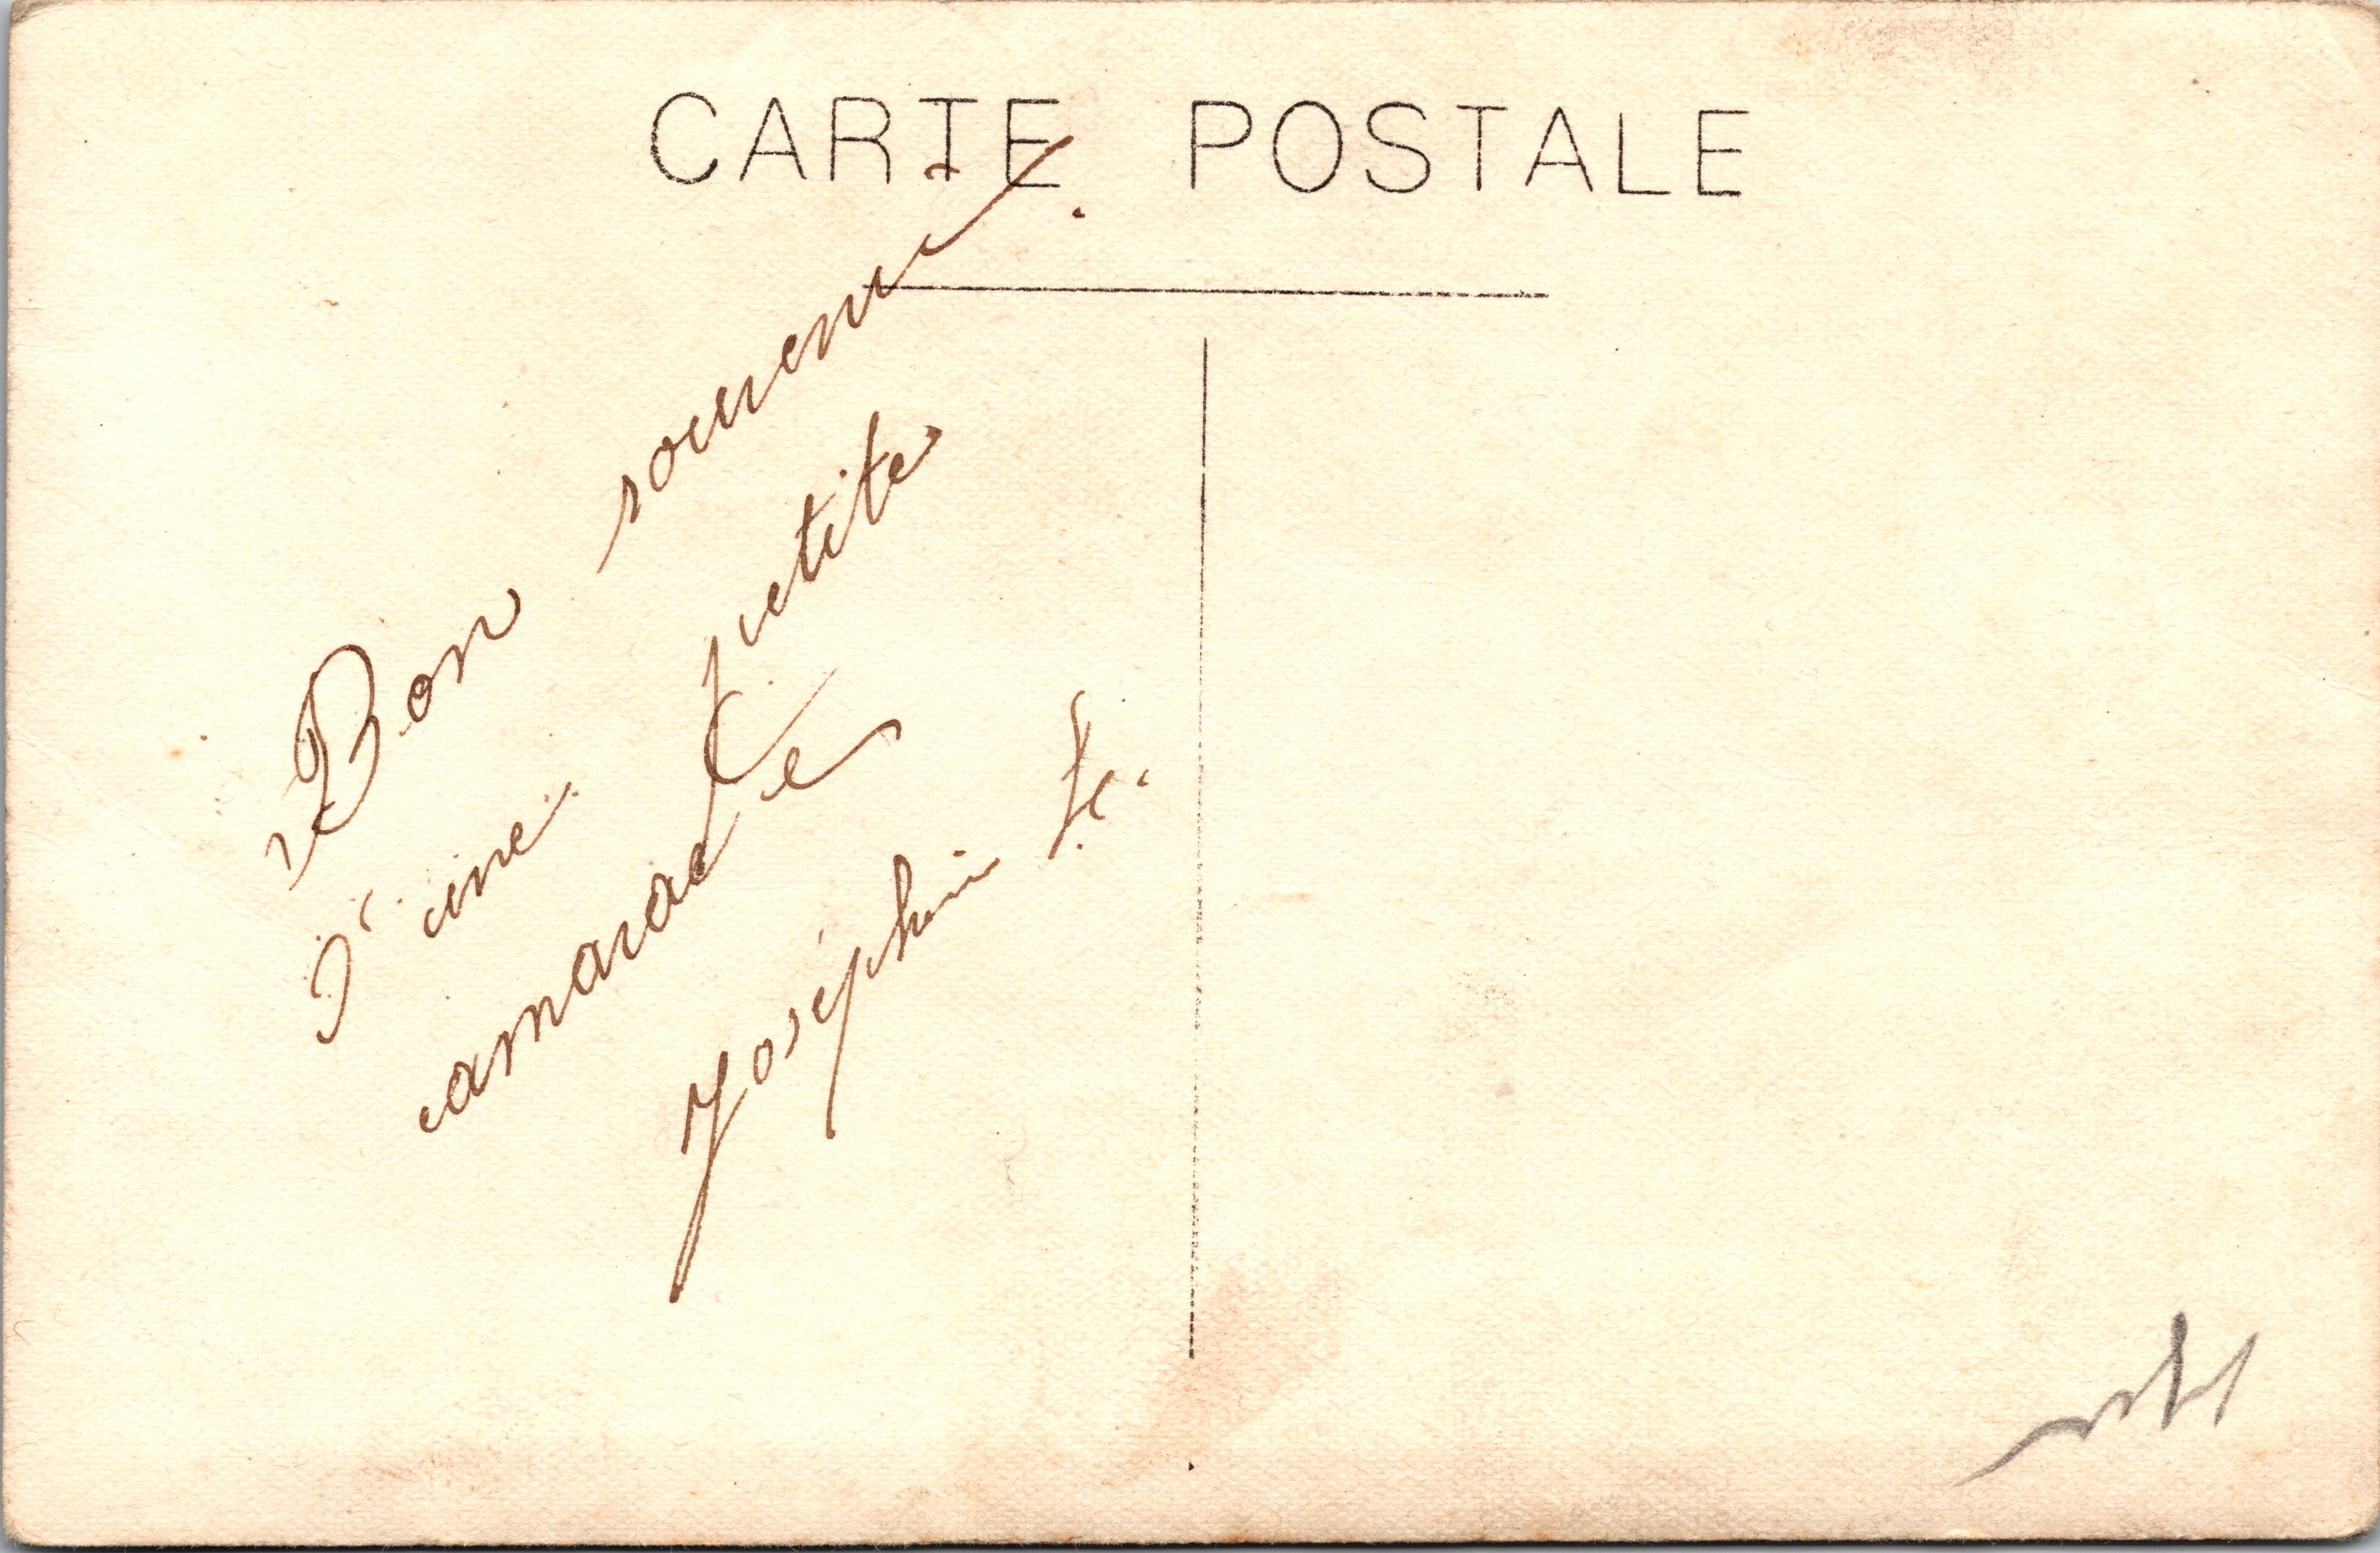 CARTE POSTALE
Bon souvenir
d'une petite
camarade
Joséphine